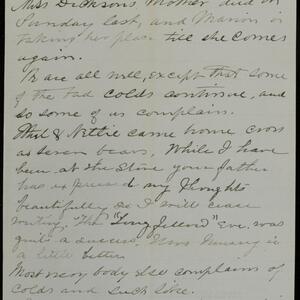 Miss Dickson's Mother died on
Sunday last, and Marion is
taking her place till she comes
again.
We are all well, except that some
of the bad colds continue, and
so some of us complain.
Ethel & Nettie came home cross
as seven bears, While I have
been at the Store your father
has expressed my thoughts
beautifully So I will cease
writing, The "Longfellow" Eve. was
quite a success,
is a little better
Most every body else complains of
colds and such like.